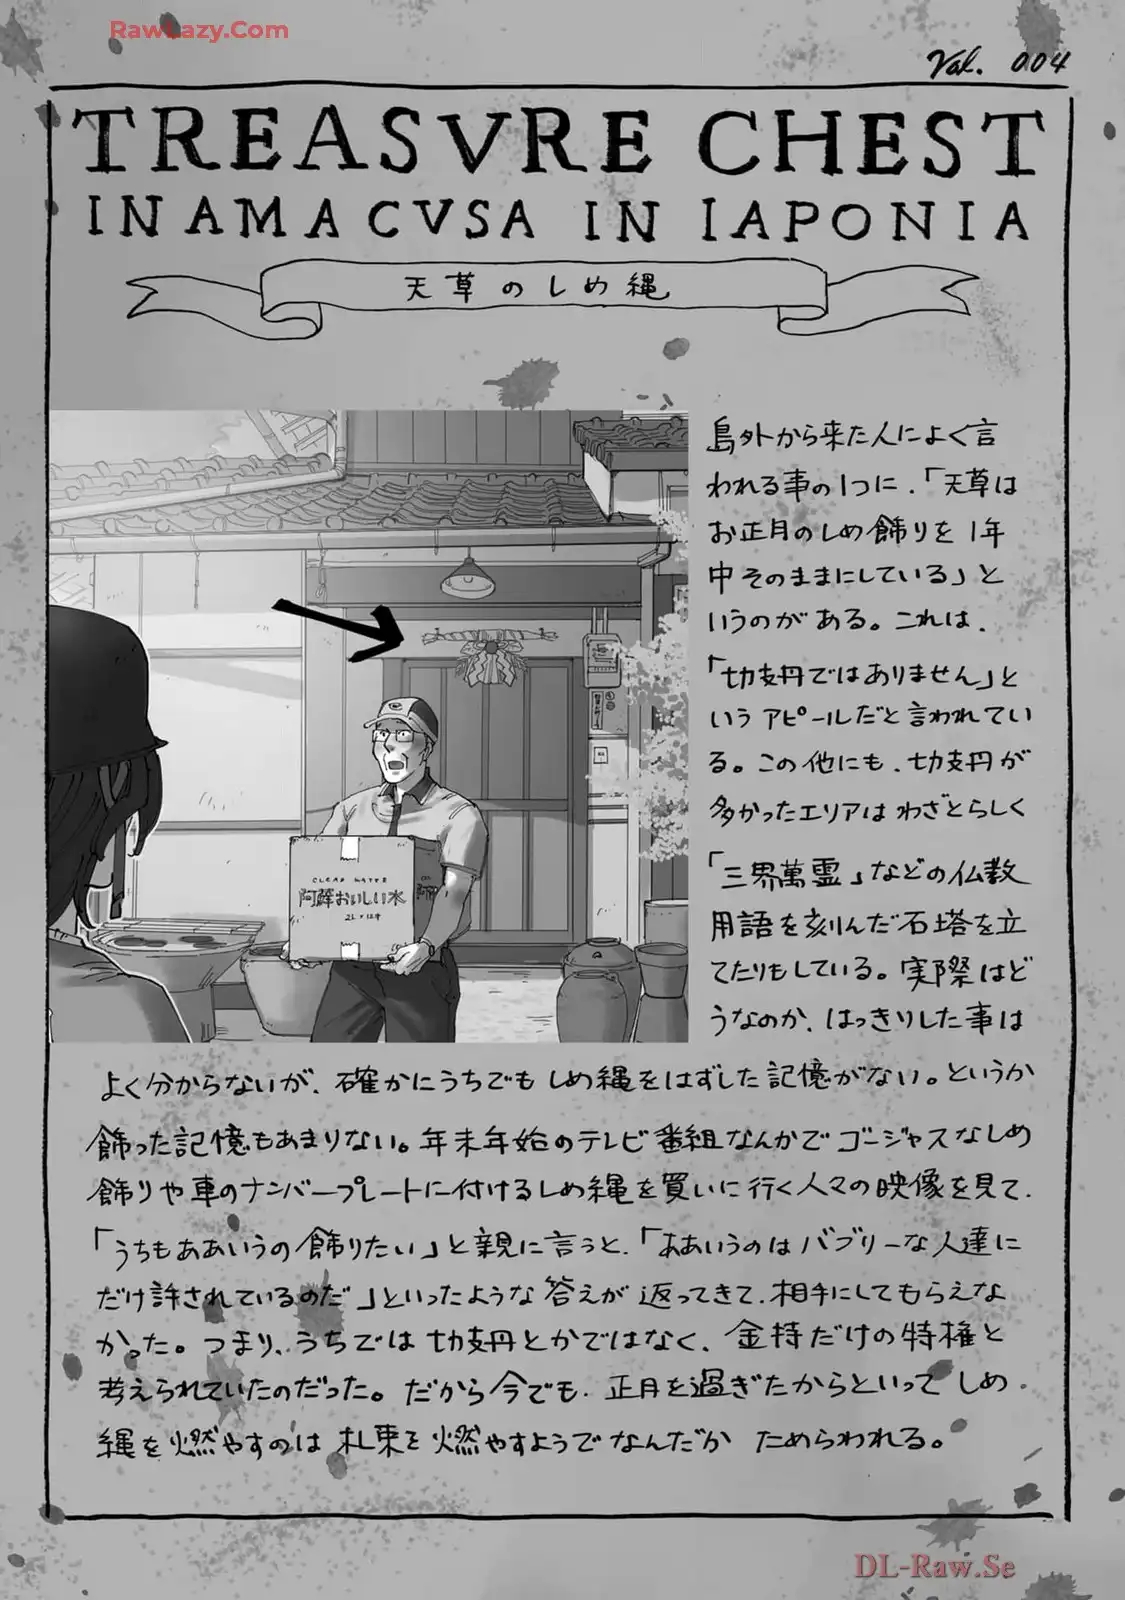 RawLazy.Com
Val. 004
TREASVRE CHEST
IN AMACVSA IN IAPONIA
天草のしめ縄
島外から来た人によく言
われる事の1つに、「天草は
お正月のしめ飾りを1年
中そのままにしている」と
いうのがある。これは、
「切支丹ではありません」と
いうアピールだと言われてい
る。この他にも、切支丹が
多かったエリアはわざとらしく
「三界萬霊」などの仏教
用語を刻んだ石塔を立
てたりもしている。実際はど
うなのか、はっきりした事は
CLEAR WATER
阿蘇おいしい水
2L×12本
よく分からないが、確かにうちでもしめ縄をはずした記憶がない。というか
飾った記憶もあまりない。年末年始のテレビ番組なんかでゴージャスなしめ
飾りや車のナンバープレートに付けるしめ縄を買いに行く人々の映像を見て、
「うちもああいうの飾りたい」と親に言うと、「ああいうのはバブリーな人達に
だけ許されているのだ」といったような答えが返ってきて、相手にしてもらえな
かった。つまり、うちでは切支丹とかではなく、金持だけの特権と
考えられていたのだった。だから今でも、正月を過ぎたからといってしめ
縄を燃やすのは札束を燃やすようでなんだかためらわれる。
DL-Raw.Se